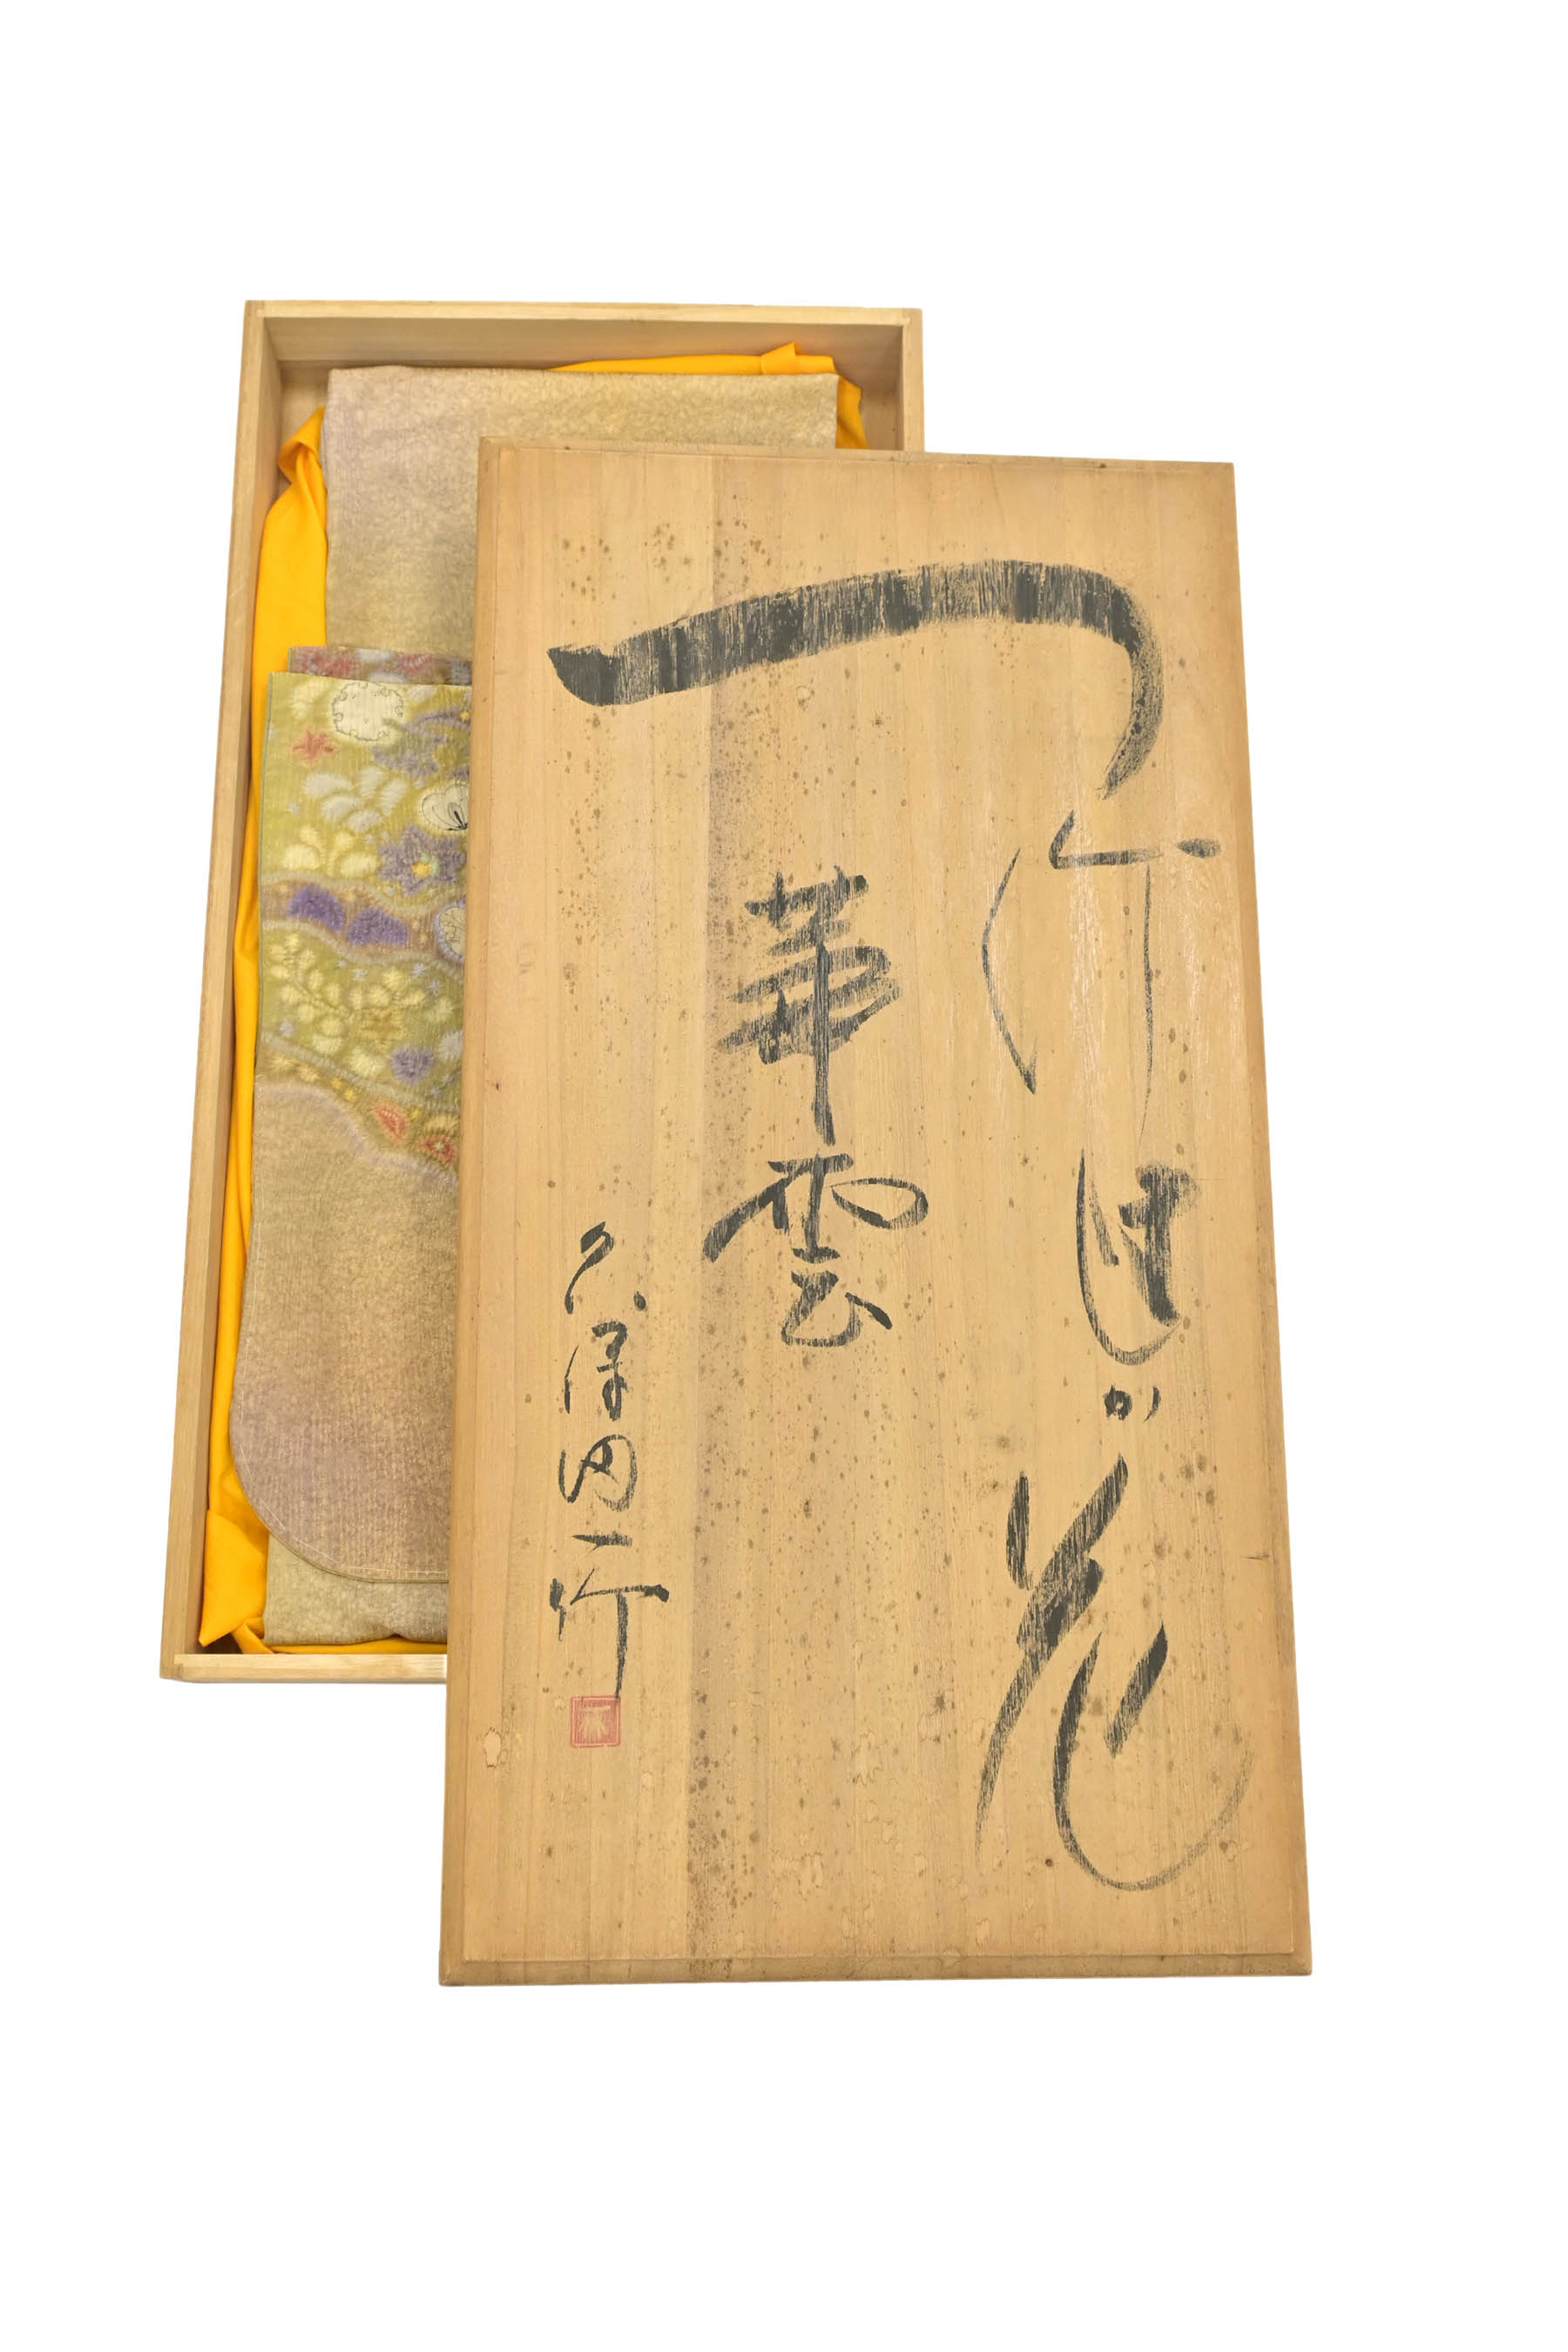 一竹辻が花
華雲
久保田一竹